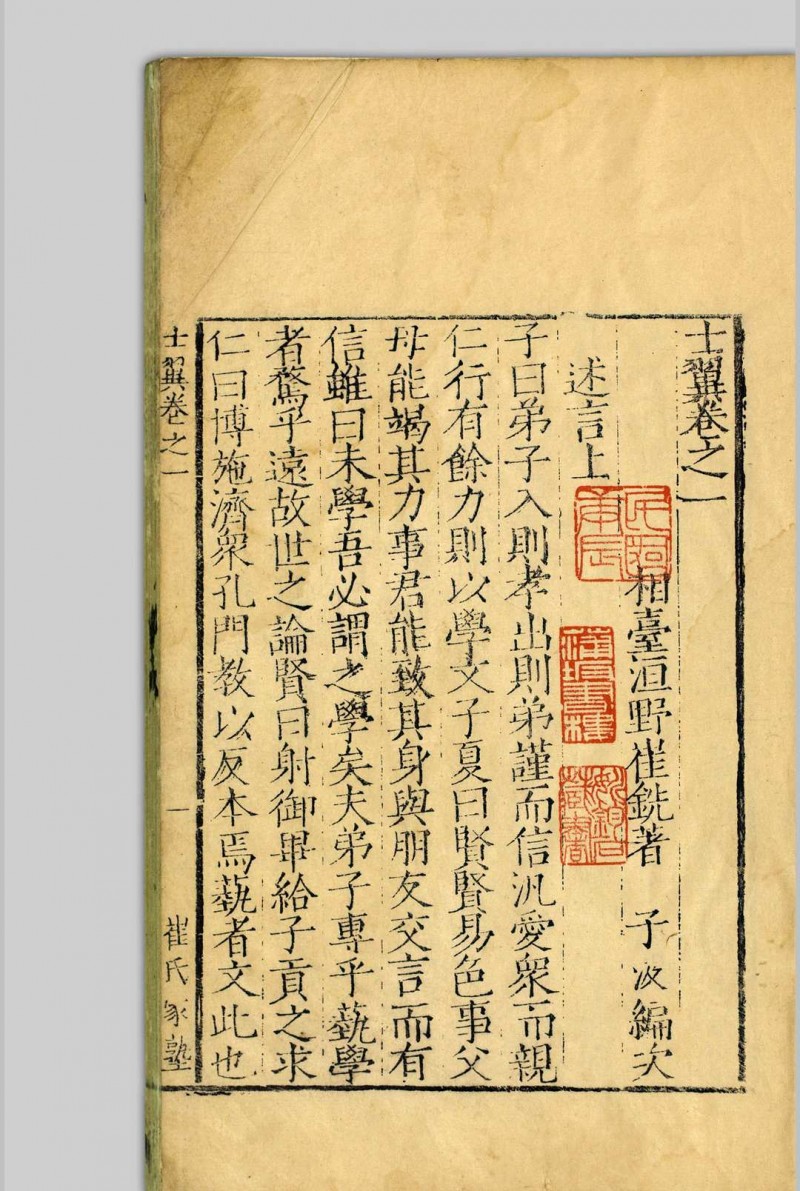 士翼卷之一
相臺洹野崔銑著 子汲編次
述言上
子曰弟子入則孝出則弟謹而信汎愛衆而親
仁行有餘力則以學文子夏曰賢賢易色事父
母能竭其力事君能致其身與朋友交言而有
信雖曰未學吾必謂之學矣夫弟子專乎藝學
者騖乎遠故世之論賢曰射御畢給子貢之求
仁曰博施濟衆孔門教以反本焉藝者文此也
士翼卷之一 一 崔氏家塾